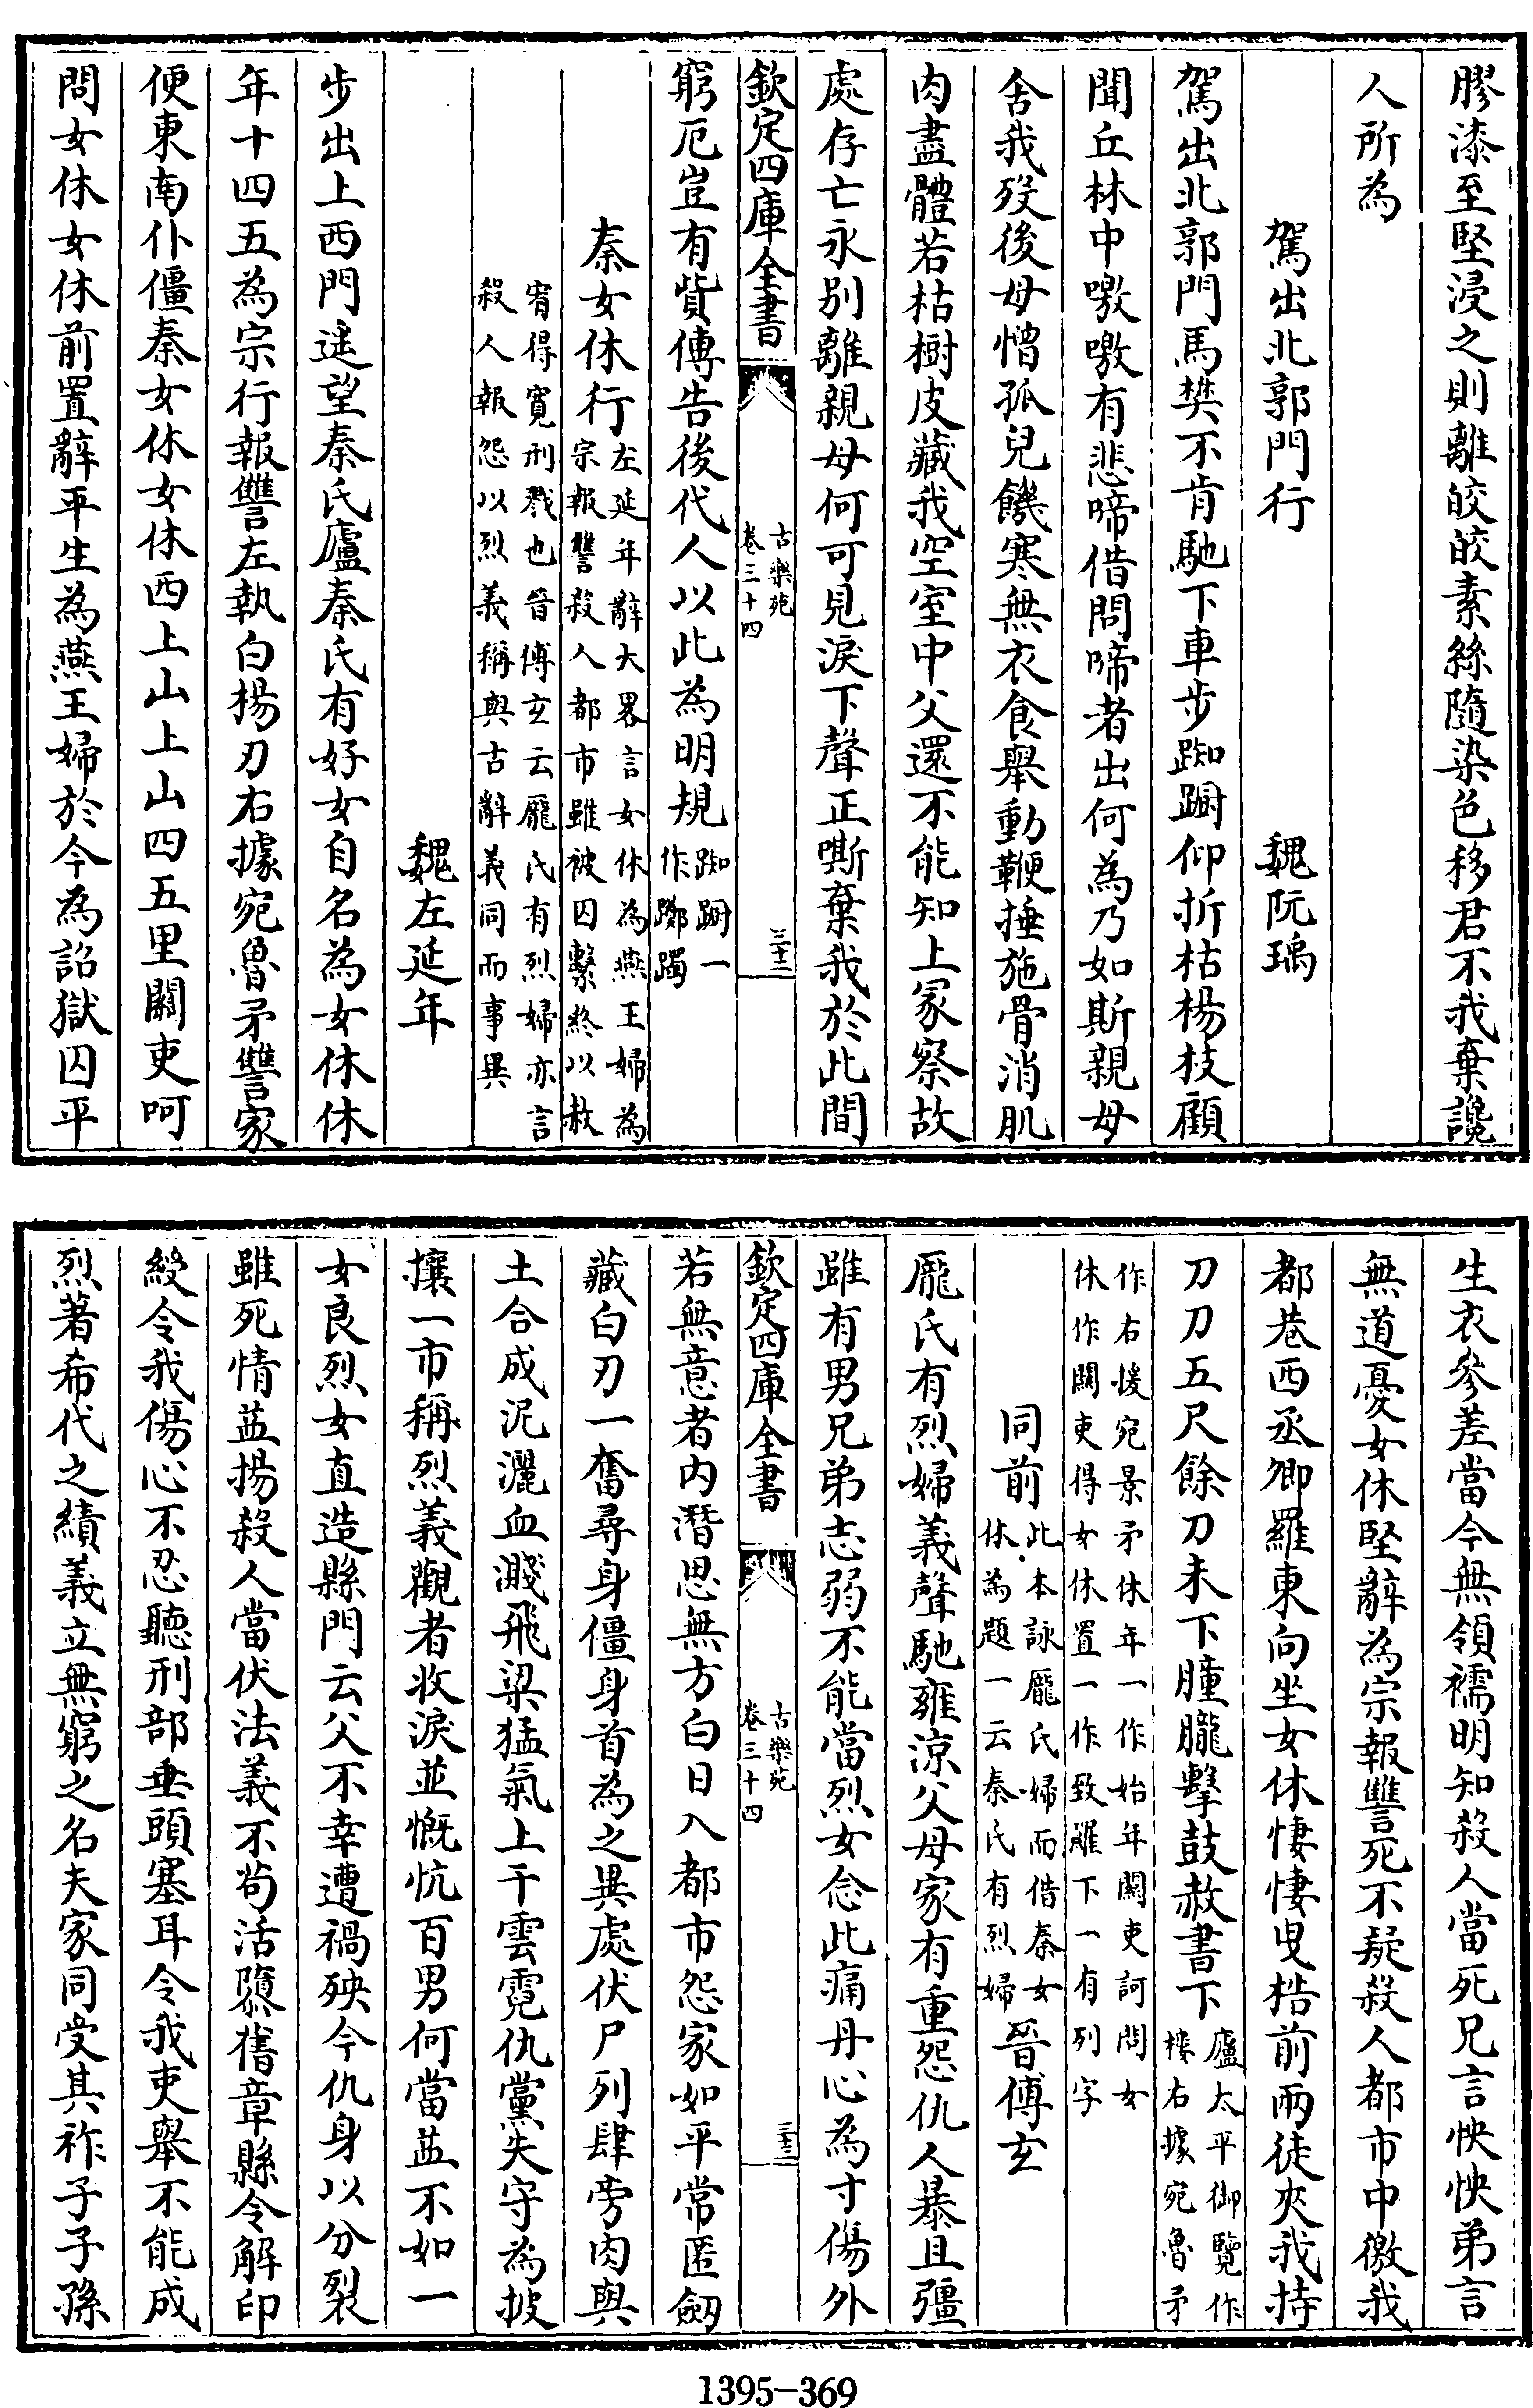 膠漆至堅浸之則離皎皎素絲隨染色移君不我棄讒
人所為
駕出北郭門行　魏阮瑀
駕出北郭門馬樊不肯馳下車步踟躕仰折枯楊枝顧
聞丘林中噭噭有悲啼借問啼者出何為乃如斯親母
舍我歿後母憎孤兒饑寒無衣食舉動鞭捶施骨消肌
肉盡體若枯樹皮藏我空室中父還不能知上冢察故
處存亡永別離親母何可見淚下聲正嘶棄我於此間
欽定四庫全書　古樂苑卷三十四　三十二
窮厄豈有貲傳告後代人以此為明規踟躕一作躑躅
秦女休行左延年辭大畧言女休為燕王婦為宗報讐殺人都市雖被囚繫終以赦
宥得寬刑戮也晉傅玄云龐氏有烈婦亦言殺人報怨以烈義稱與古辭義同而事異
魏左延年
步出上西門遥望秦氏廬秦氏有好女自名為女休休
年十四五為宗行報讐左執白楊刃右據宛魯矛讐家
便東南仆僵秦女休女休西上山上山四五里關吏呵
問女休女休前置辭平生為燕王婦於今為詔獄囚平
生衣參差當今無領襦明知殺人當死兄言怏怏弟言
無道憂女休堅辭為宗報讐死不疑殺人都市中徼我
都巷西丞卿羅東向坐女休悽悽曵梏前兩徒夾我持
刀刀五尺餘刀未下朣朧擊鼓赦書下廬太平御覽作樓右據宛魯矛
作右援宛景矛休年一作始年關吏訶問女休作關吏得女休置一作致羅下一有列字
同前此本詠龐氏婦而借秦女休為題一云秦氏有烈婦　晉傅玄
龐氏有烈婦義聲馳雍涼父母家有重怨仇人暴且彊
雖有男兄弟志弱不能當烈女念此痛丹心為寸傷外
欽定四庫全書　古樂苑卷三十四　三十三
若無意者內潛思無方白日入都市怨家如平常匿劒
藏白刃一奮尋身僵身首為之異處伏尸列肆旁肉與
土合成泥灑血濺飛梁猛氣上干雲霓仇黨失守為披
攘一市稱烈義觀者收淚並慨忼百男何當益不如一
女良烈女直造縣門云父不幸遭禍殃今仇身以分裂
雖死情益揚殺人當伏法義不苟活隳舊章縣令解印
綬令我傷心不忍聽刑部垂頭塞耳令我吏舉不能成
烈著希代之績義立無窮之名夫家同受其祚子子孫
1395-369